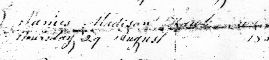 James Madison
Thursday 29 August 18